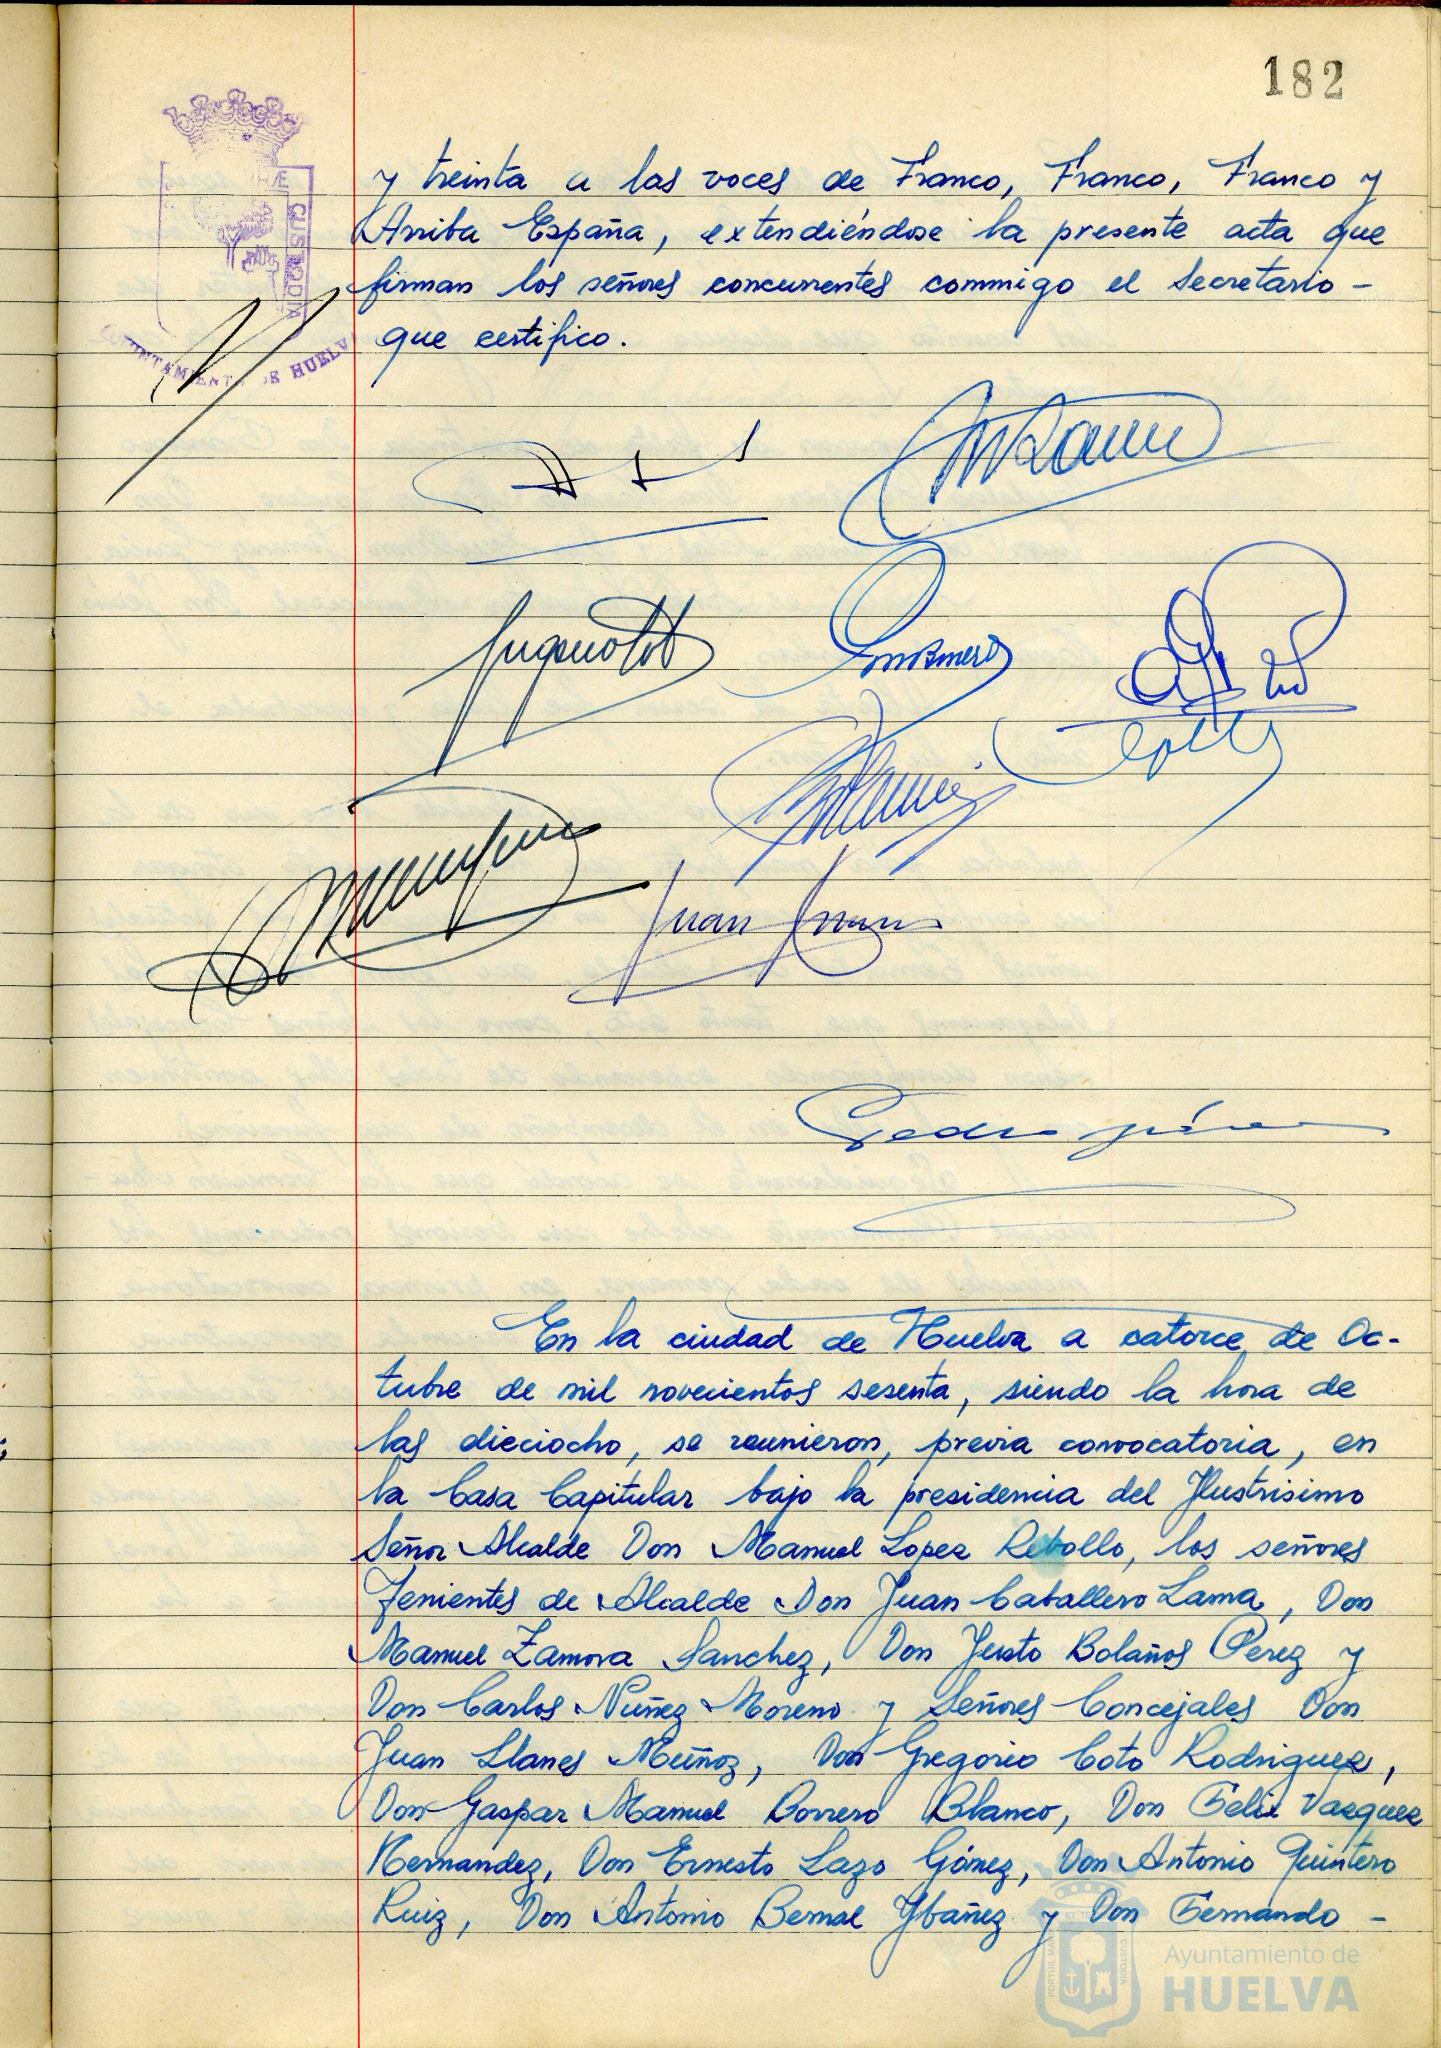 182
y treinta a las voces de Franco, Franco, Franco y
Arriba España, extendiéndose la presente acta que
firman los señores concurrentes commigo el secretario -
que certifico.
CUSTODIA
AYUNTAMIENTO DE HUELVA
Juan
Pedro
En la ciudad de Huelva a catorce de Oc-
tubre de mil novecientos sesenta, siendo la hora de
las dieciocho, se reunieron, previa convocatoria, en
la Casa Capitular bajo la presidencia del Ylustrisimo
Señor Alcalde Don Manuel Lopez Rebollo, los señores
Tenientes de Alcalde Don Juan Caballero Lama, Don
Manuel Zamora Sanchez, Don Justo Bolaños Perez y
Don Carlos Nuñez Moreno y Señores Concejales Don
Juan Llanes Muñoz, Don Gregorio Coto Rodriguez,
Don Gaspar Manuel Borrero Blanco, Don Felix Vazquez
Hernandez, Don Ernesto Lazo Gómez, Don Antonio Quintero
Ruiz, Don Antonio Bernal Ybañez y Don Fernando -
Ayuntamiento de
HUELVA